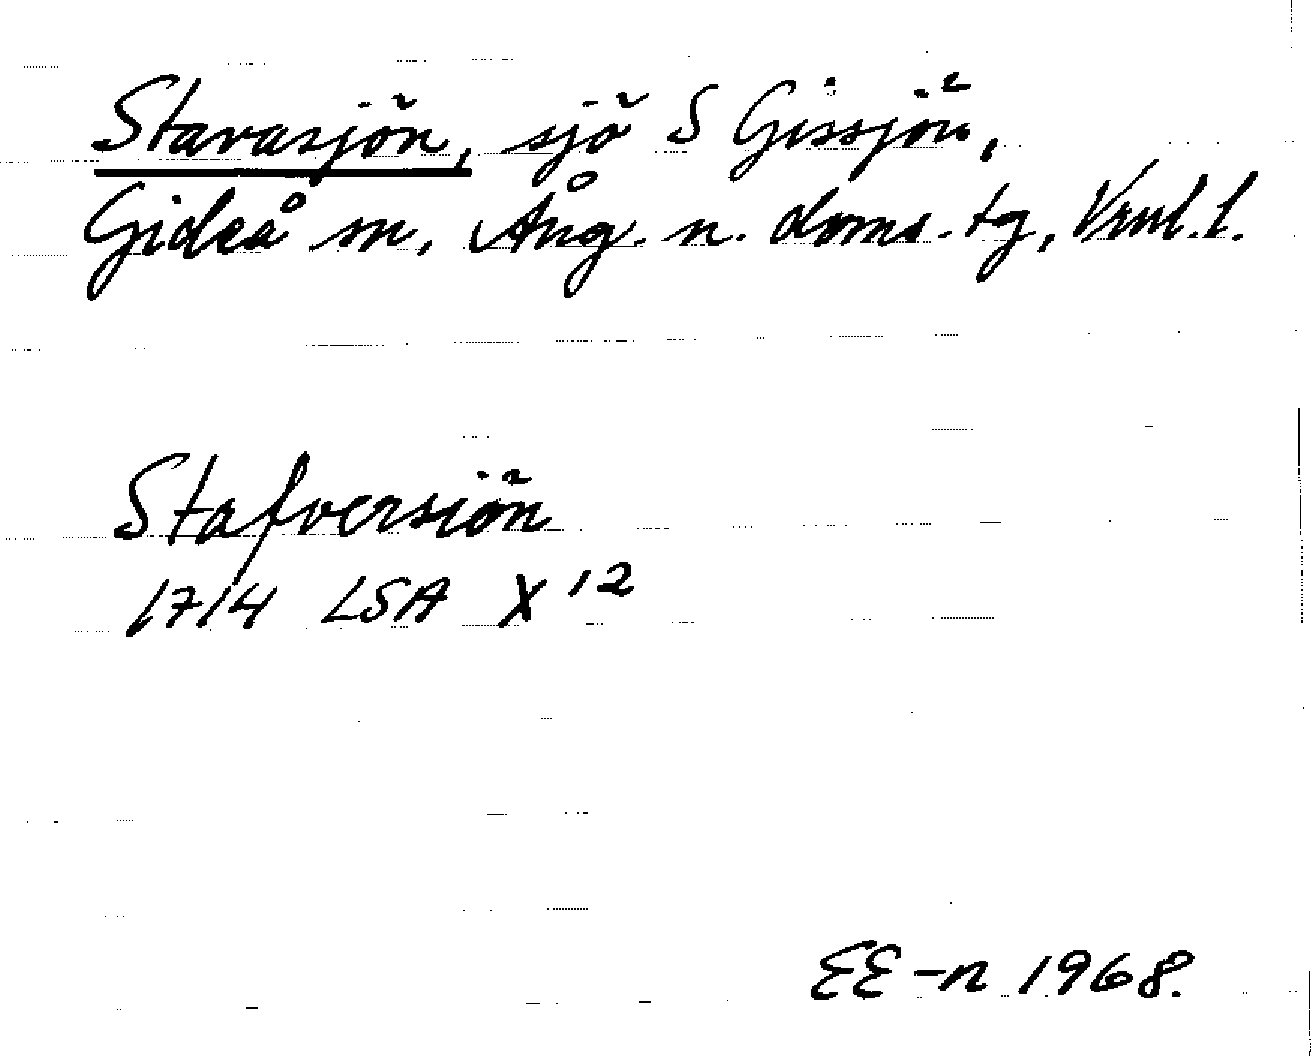 Stavasjön, sjö S Gissjön,
Gideå sn, Ång. n. doms. tg, Vrnl. l.
Stafversiön
1714 LSA X 12
EE-n 1968.